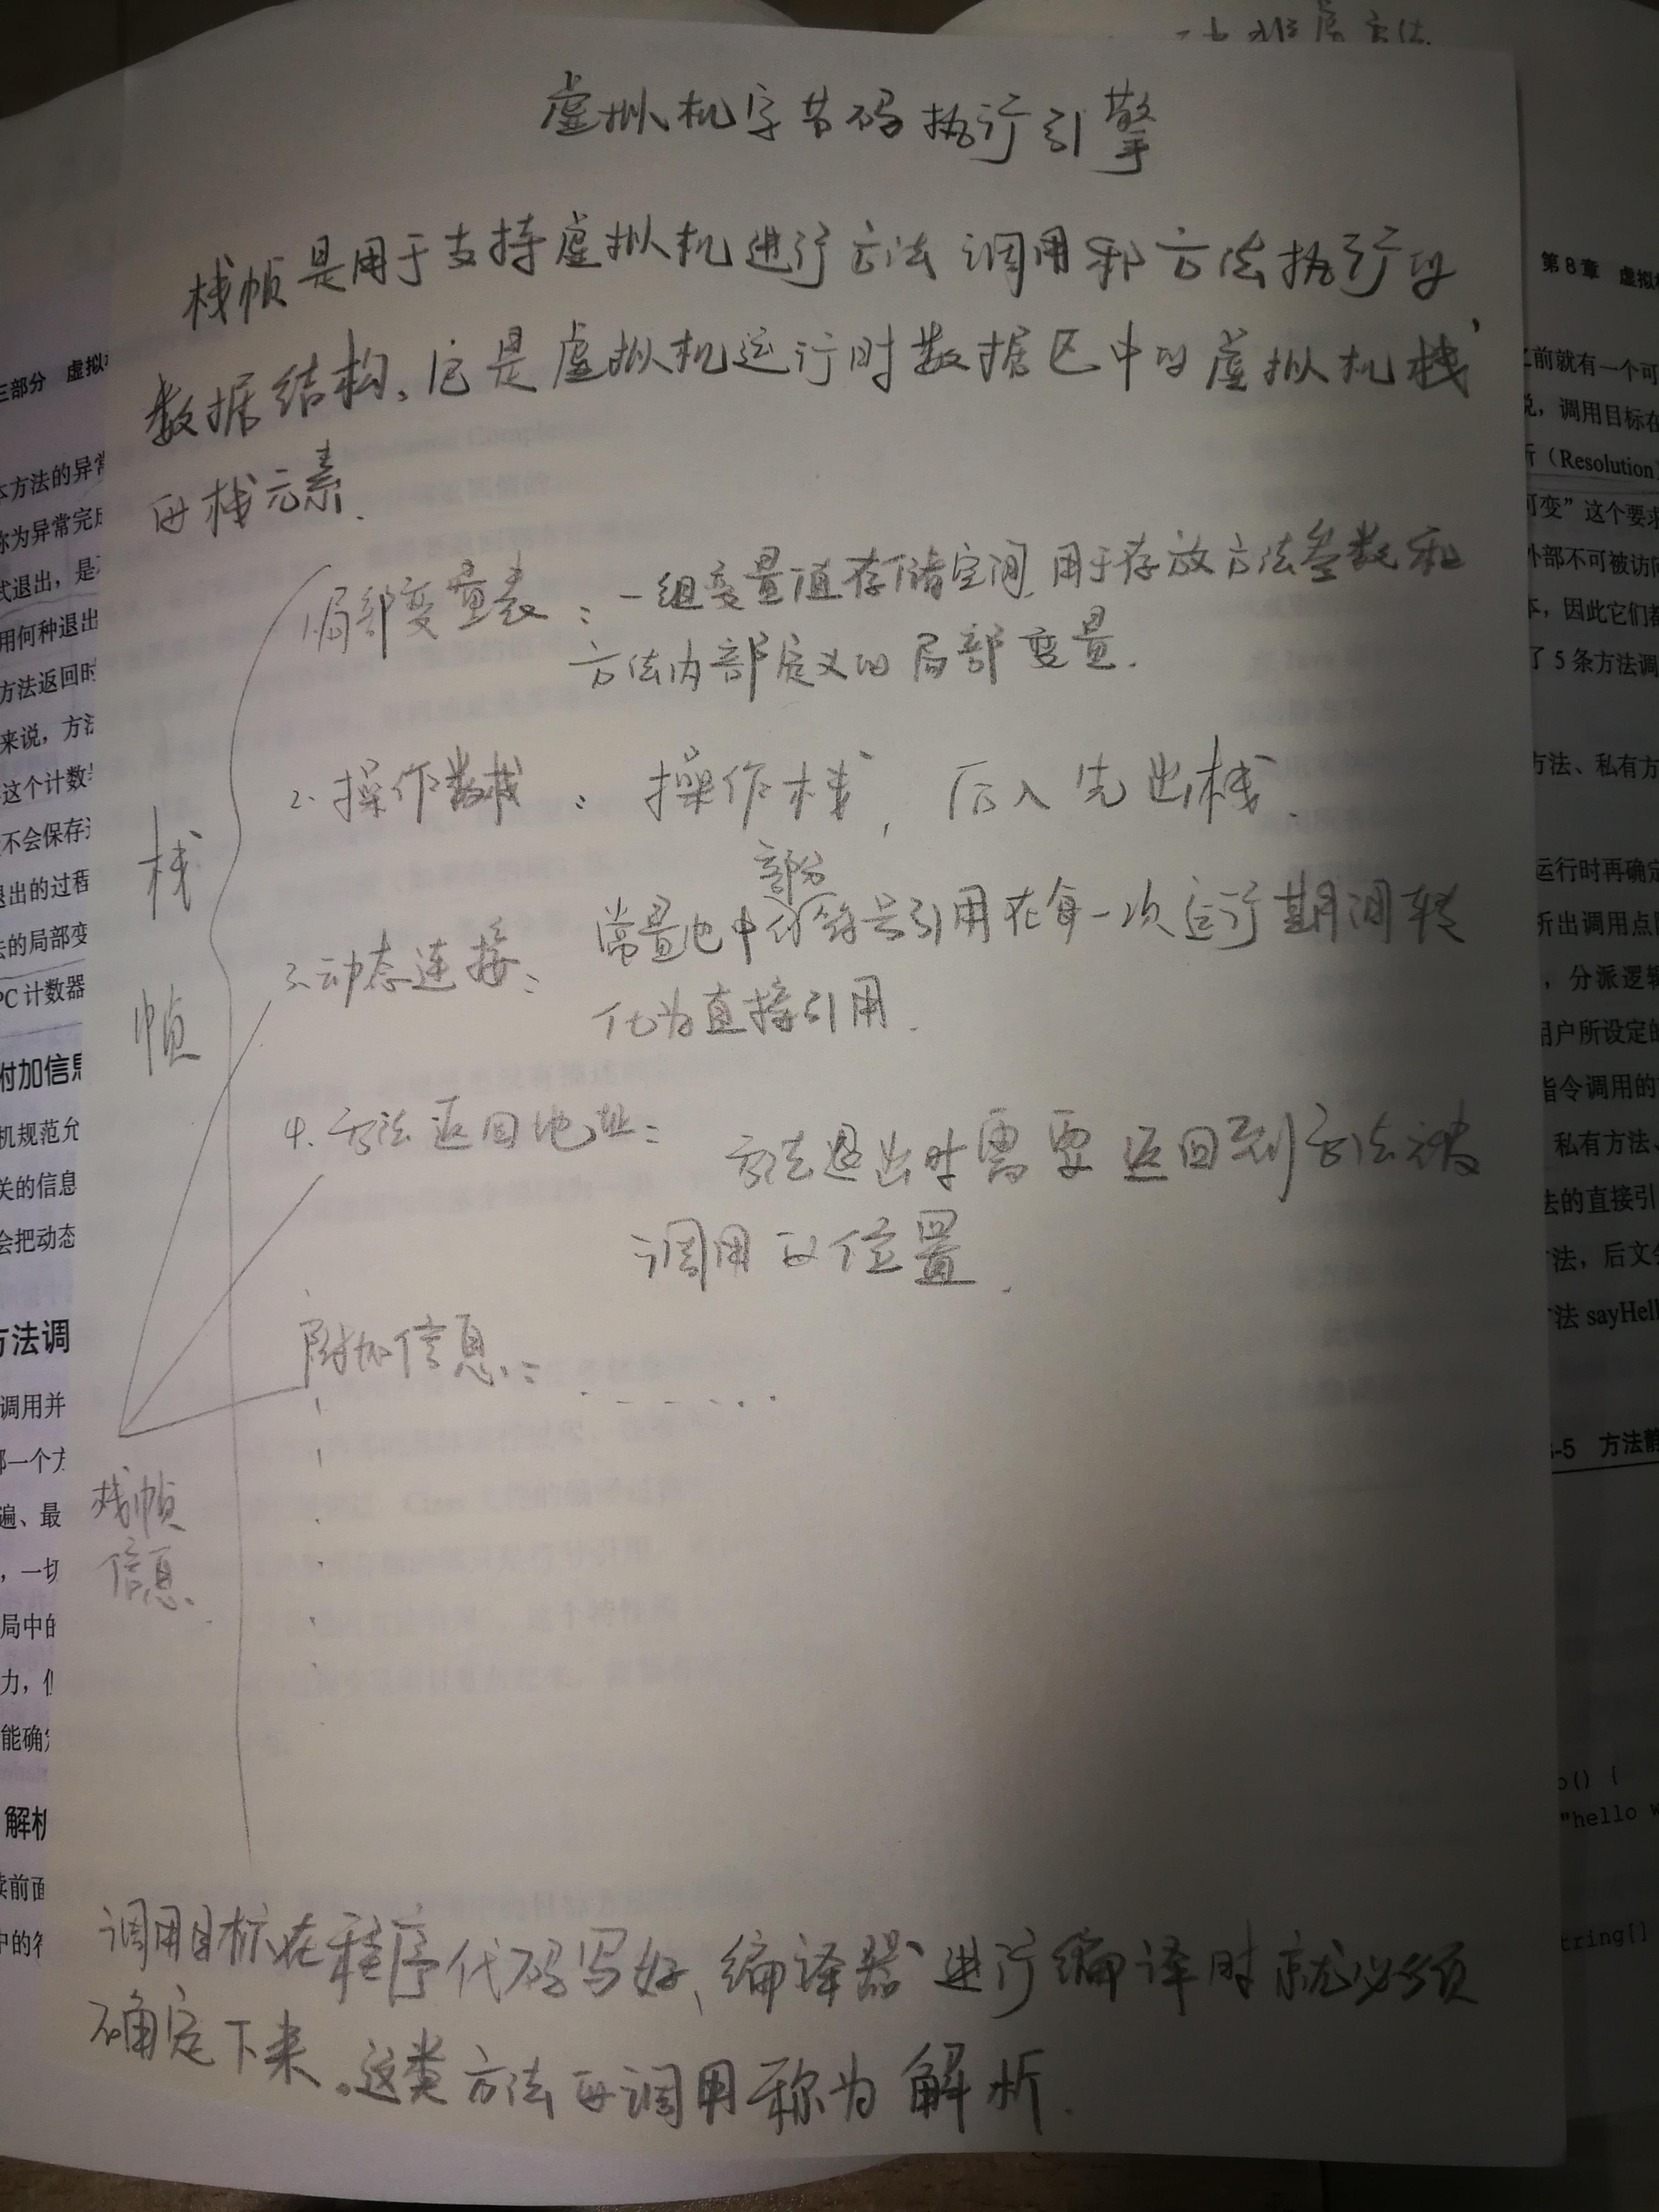 虚拟机字节码执行引擎
栈帧是用于支持虚拟机进行方法调用和方法执行的
数据结构。它是虚拟机运行时数据区中的虚拟机栈
的栈元素.
1.局部变量表:一组变量值存储空间,用于存放方法参数和
方法内部定义的局部变量.
2.操作数栈:操作栈,后入先出栈.
部分
3.动态连接:常量池中符号引用在每一次运行期间转
化为直接引用.
4.方法返回地址:方法退出时需要返回到方法被
调用的位置.
附加信息:......
栈
帧
栈帧
信息.
调用目标在程序代码写好、编译器进行编译时就必须
确定下来。这类方法的调用称为解析.
三部分 虚拟
本方法的异常
称为异常完成
式退出,是
用何种退出
方法返回时
来说,方法
这个计数
不会保存
退出的过程
法的局部变
PC计数器
附加信息
机规范允
关的信息
会把动态
方法调
调用并
那一个方
遍、最
,一切
局中的
力,但
能确定
解析
续前面
中的符
第8章 虚拟
之前就有一个可
说,调用目标在
析(Resolution
可变”这个要求
外部不可被访问
本,因此它们都
了5条方法调
方法、私有方
运行时再确定
析出调用点
,分派逻辑
用户所设定的
指令调用的
私有方法、
去的直接引
方法,后文
方法sayHel
-5 方法静
o() {
"hello w
tring[]